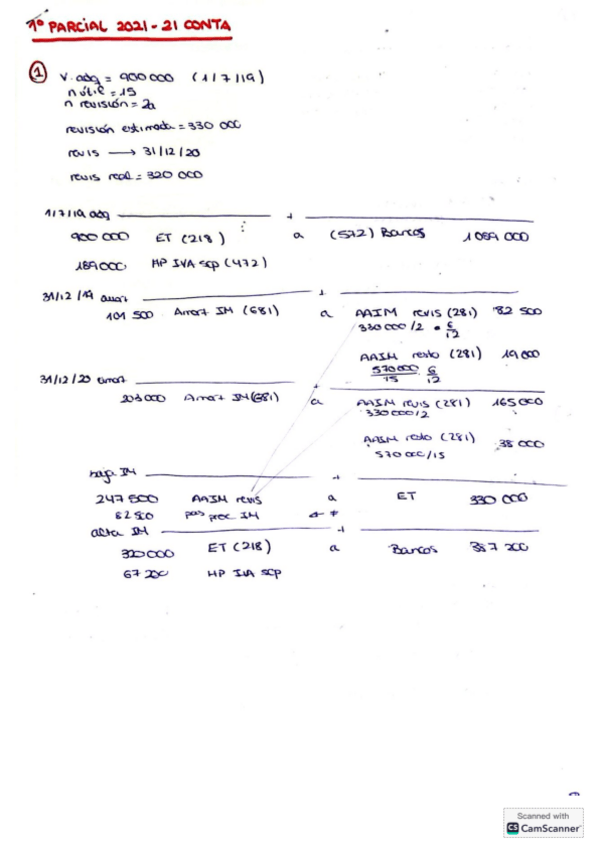 1º PARCIAL 2021-21 CONTA
① V. adq = 900 000 (1/7/19)
n útil = 15
n revisión = 2a
revisión estimada = 330 000
revis → 31/12/20
revis real = 320 000
1/7/19 adq + 
900 000 ET (218) a (572) Bancos 1 089 000
189000 HP IVA sop (472)
31/12/19 amort +
101 500 Amort IM (681) a AAIM revis (281) 82 500
330 000/2 · 6/12
AAIM resto (281) 19 000
570 000/15 · 6/12
31/12/20 amort +
203 000 Amort IM (681) a AAIM revis (281) 165 000
330 000/2
AAIM resto (281) 38 000
570 000/15
baja IM +
247 500 AAIM revis a ET 330 000
82 500 pas proc IM
alta IM +
320000 ET (218) a Bancos 387 200
67 200 HP IVA sop
Scanned with
CS CamScanner